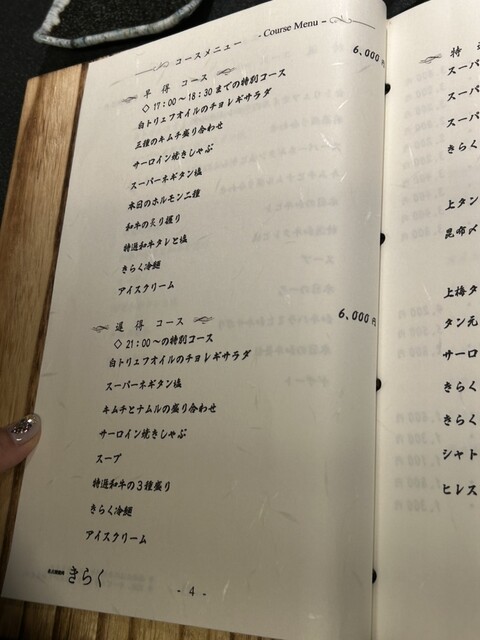 コースメニュー - Course Menu -
早得 コース 6,000円
◇17:00～18:30までの特別コース
白トリュフオイルのチョレギサラダ
三種のキムチ盛り合わせ
サーロイン焼きしゃぶ
スーパーネギタン塩
本日のホルモン二種
和牛の炙り握り
特選和牛タレと塩
きらく冷麺
アイスクリーム
遅得 コース 6,000円
◇21:00～の特別コース
白トリュフオイルのチョレギサラダ
スーパーネギタン塩
キムチとナムルの盛り合わせ
サーロイン焼きしゃぶ
スープ
特選和牛の3種盛り
きらく冷麺
アイスクリーム
きらく
- 4 -
特選
スーパー
スーパ
スーパ
きらく
上タン
昆布〆
上梅タ
タン元
サーロ
きらく
きらく
シャト
ヒレス